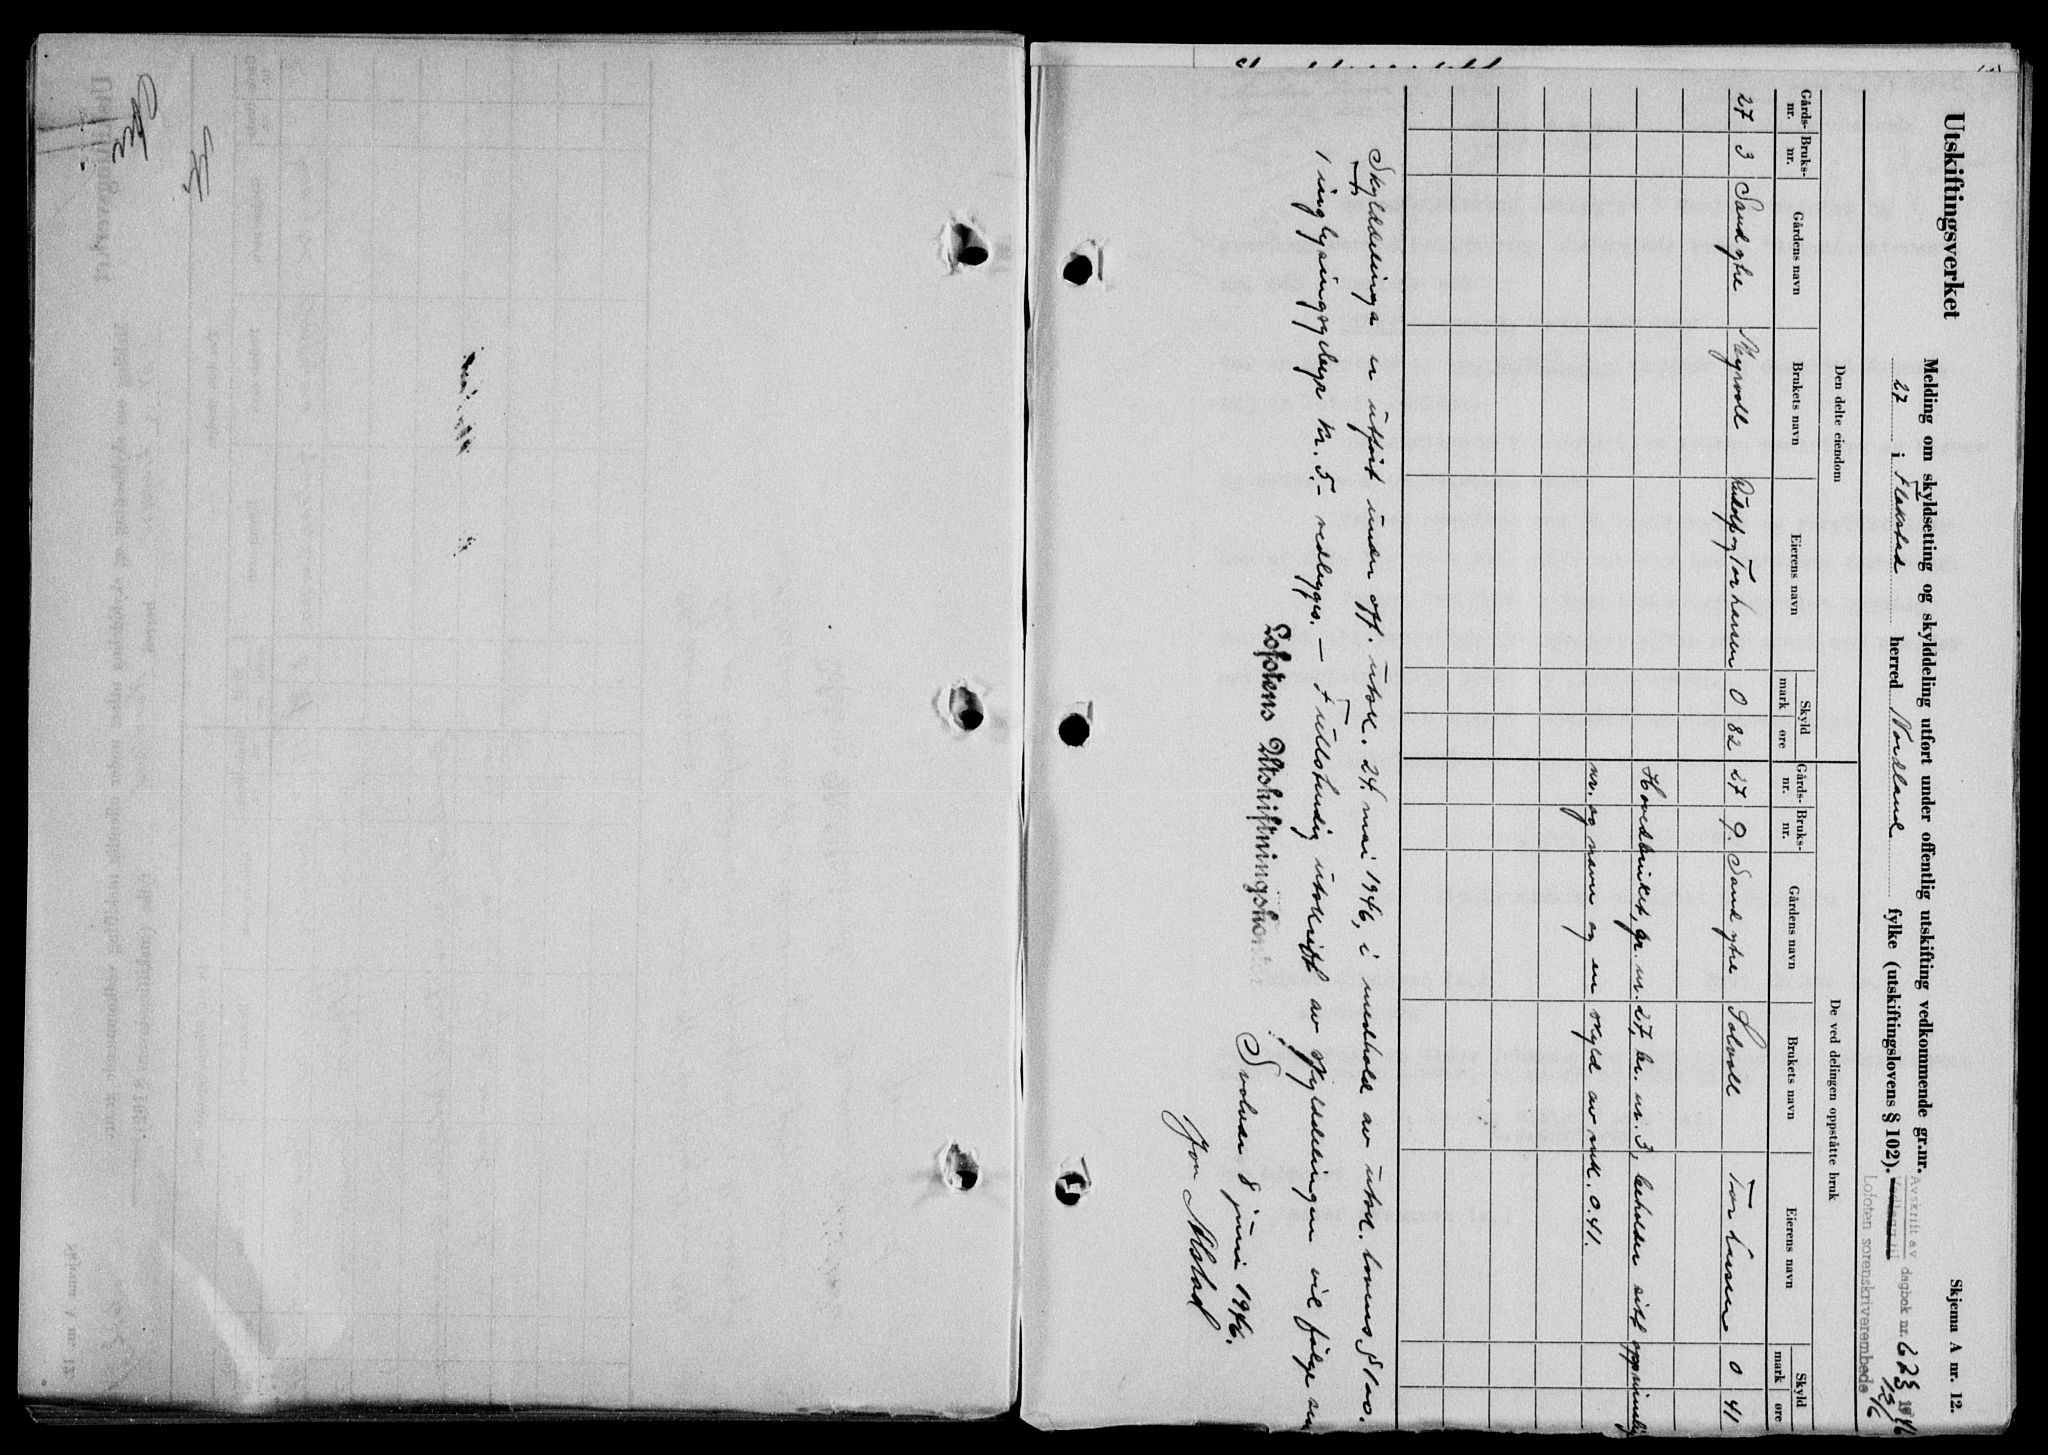 Utskiftingsverket
Skjema A nr. 12.
Melding om skyldsetting og skylddeling utført under offentlig utskifting vedkommende gr.nr.
27 i Flakstad herred Nordland fylke (utskiftingslovens § 102).
Avskrift av
Vedlegg til dagbok nr. 623 1946
Lofoten sorenskriverembede
Den delte eiendom
De ved delingen oppståtte bruk
Gårds-nr. Bruks-nr. Gårdens navn Brukets navn Eierens navn Skyld mark øre Gårds-nr. Bruks-nr. Gårdens navn Brukets navn Eierens navn Skyld mark øre
27 3 Sandytre Røgvoll Rudolf og Tor Larsen 0 82 27 9. Sandytre Solvoll Tor Larsen 0 41
Hovedbruket, gr. nr. 27, br. nr. 3, beholder sitt opprinnelig
nr. og navn og en skyld av mk. 0.41.
Skylddelinga er utført under off. utsk. 24. mai 1946, i medhold av utsk. lovens § 100.
Tinglysingsgebyr kr. 5,- vedlegges. – Fullstendig utskrift av skylddelingen vil følge sen
Lofotens Utskiftningskontor
Svolvær 8 juni 1946.
Jon Alstad